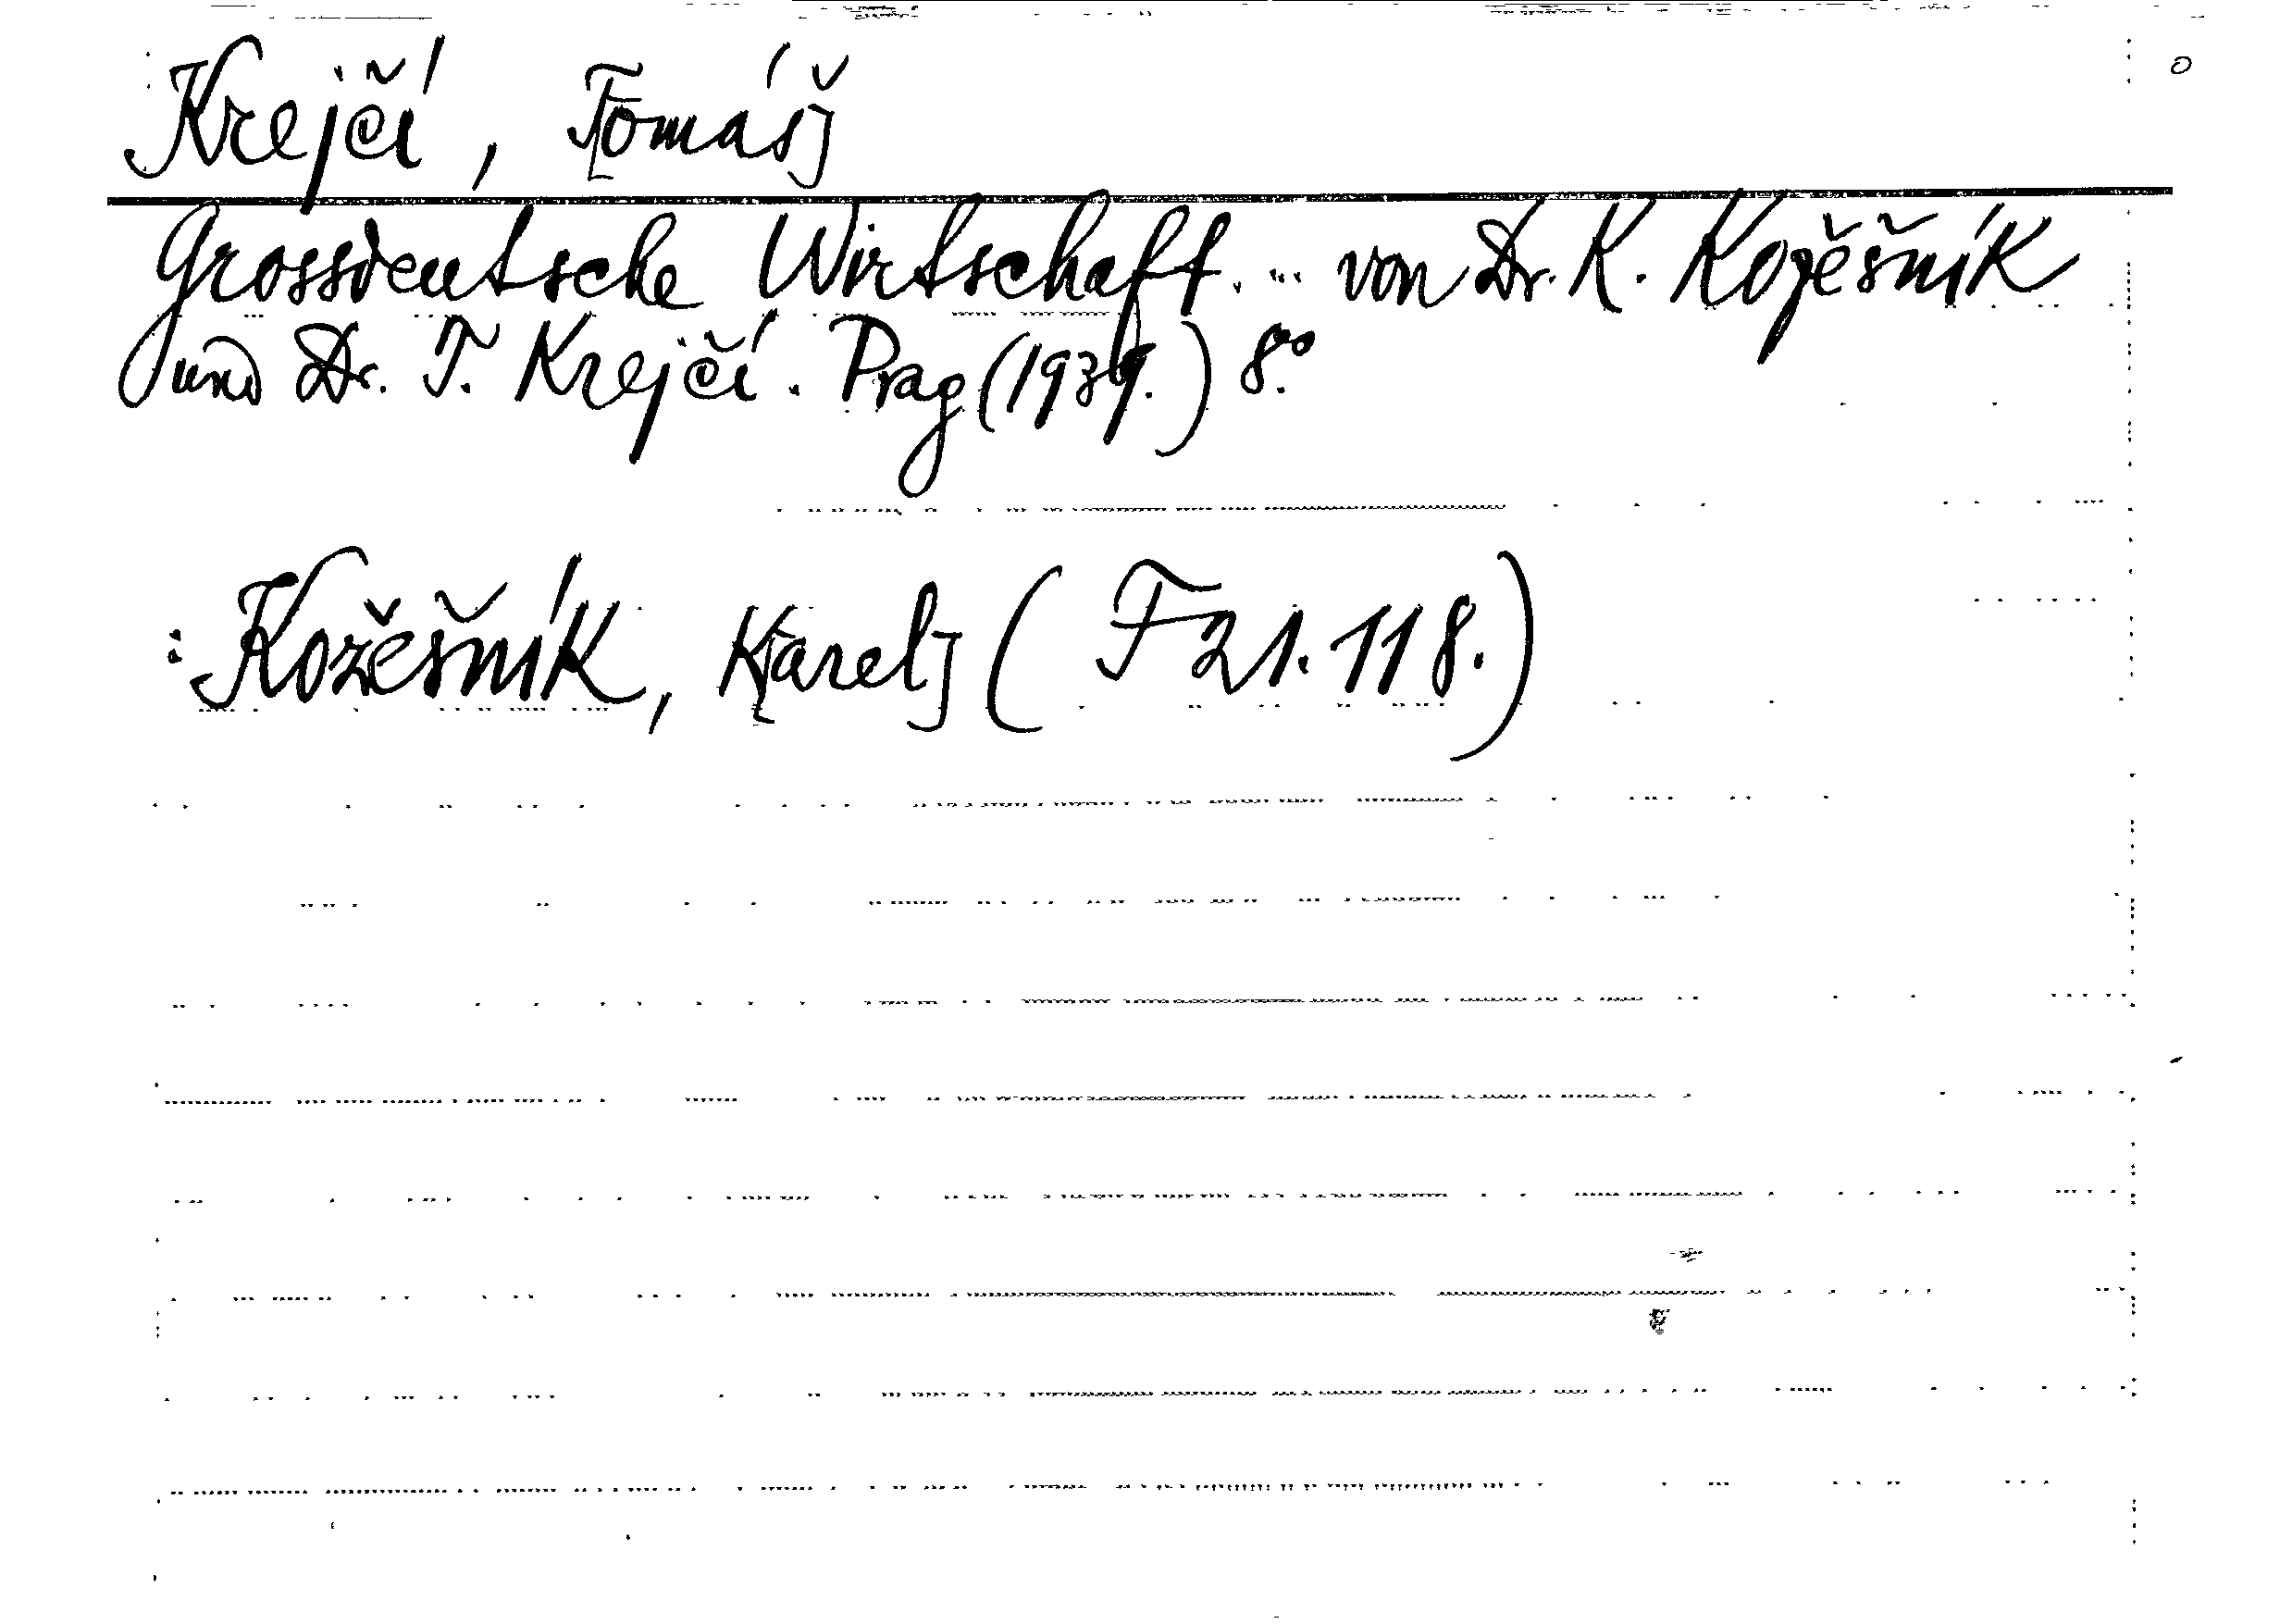 Krejčí, T[omáš]
Grossdeutsche Wirtschaft. ... von Dr. K. Kožěšník
und Dr. T. Krejčí. Prag (1939.) 8.°
: Kožěšník, K[arel] (F 21.118.)